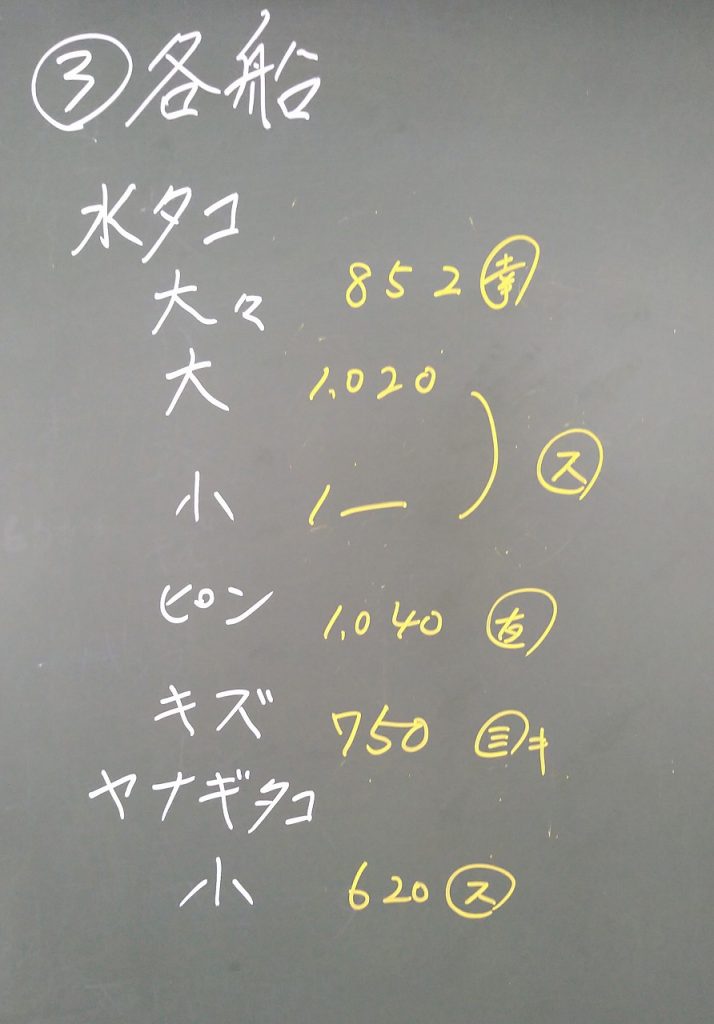 ③各船
水タコ
大々 852 ㊥幸
大 1,020
小 1― ㋜
ピン 1,040 友
キズ 750 三キ
ヤナギタコ
小 620 ㋜